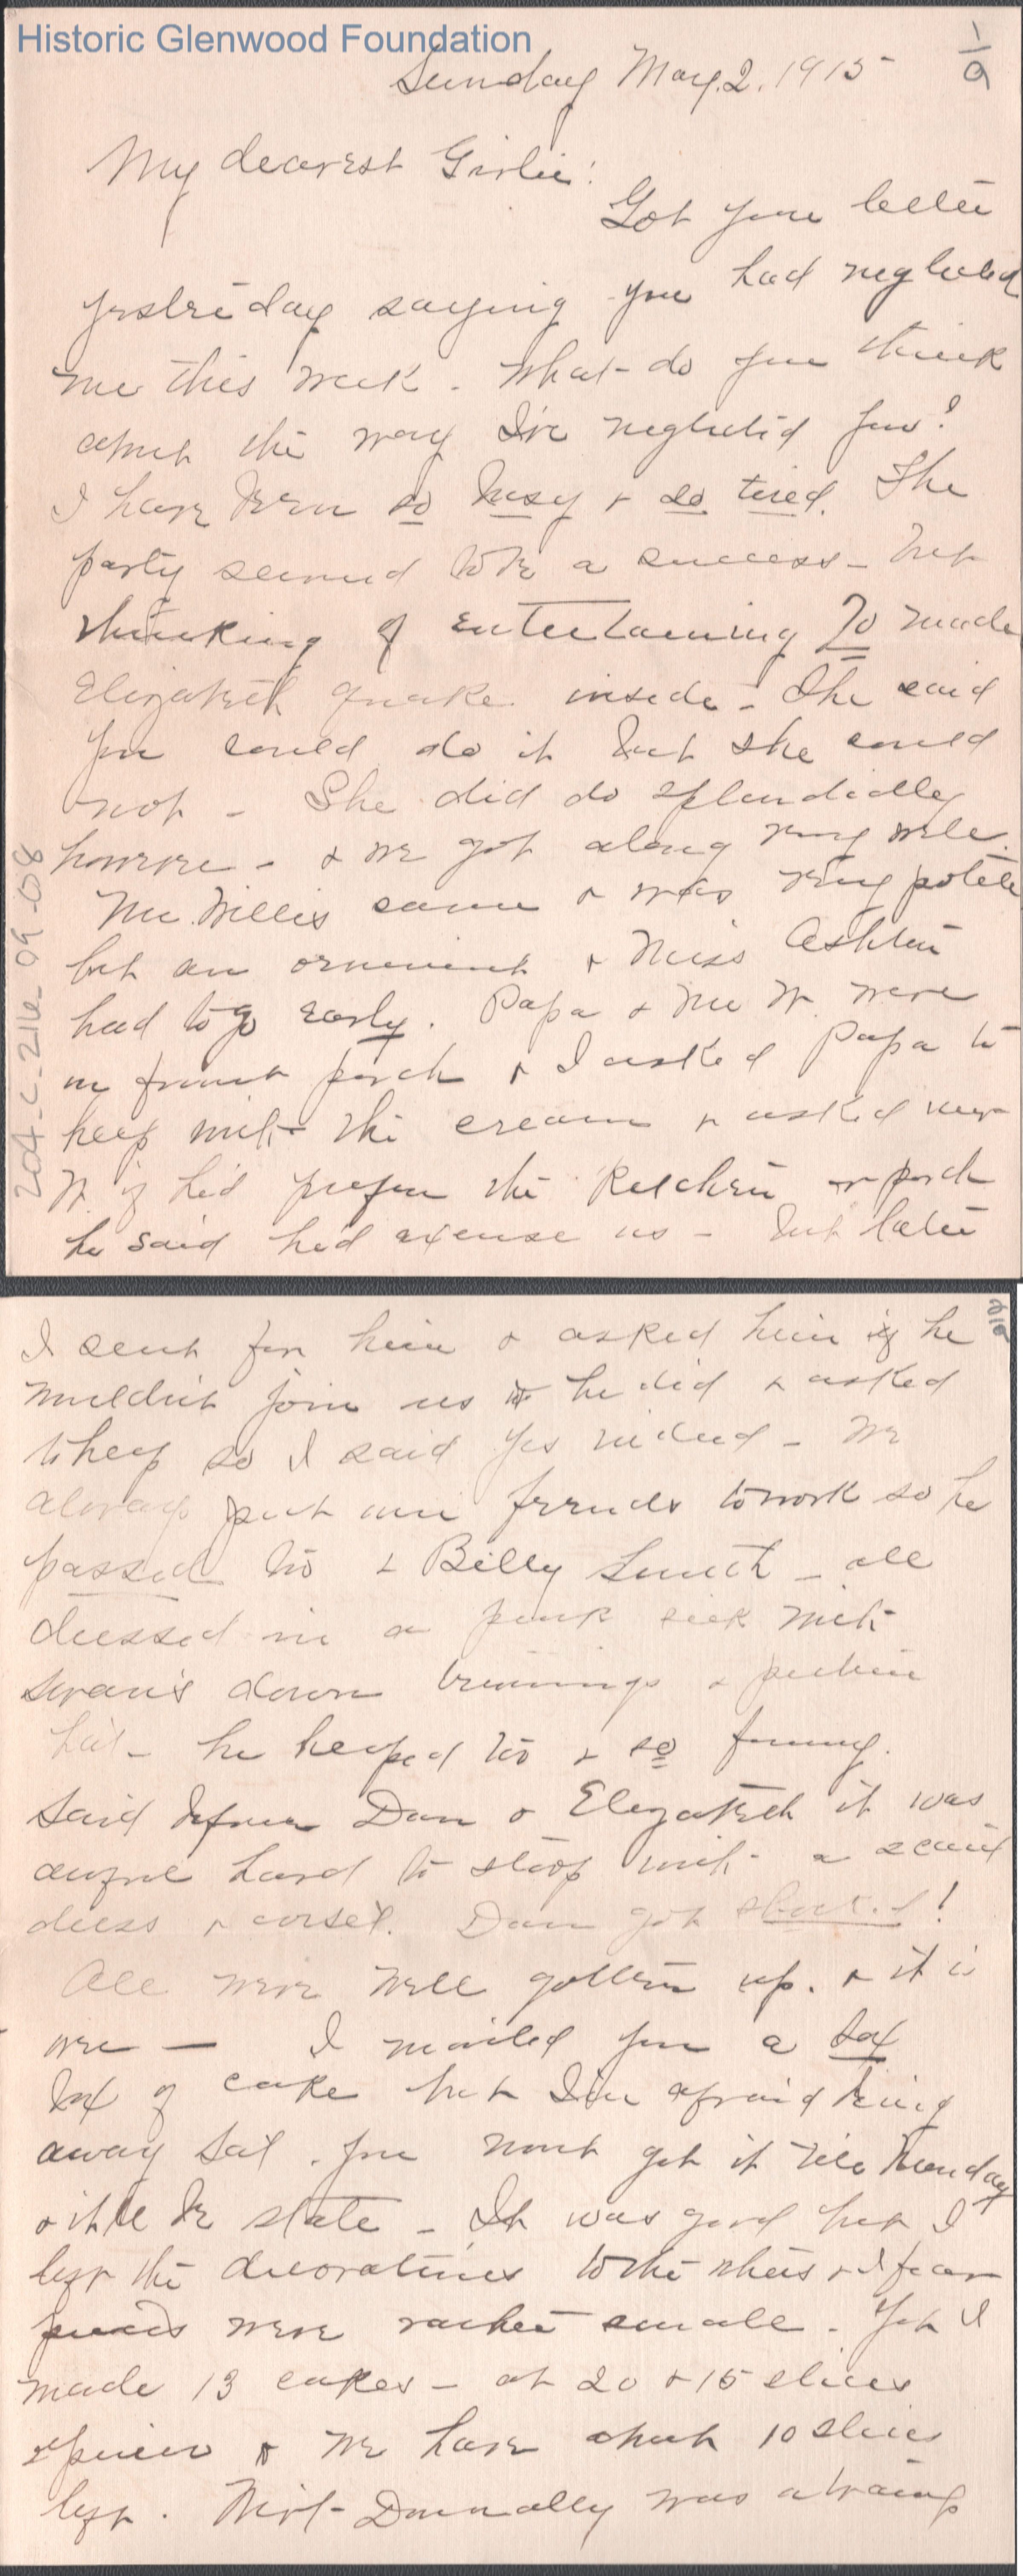 Historic Glenwood Foundation
1/9
Sunday May. 2. 1915
My dearest Girlie:
Got your letter
yesterday saying you had neglected
me this week. What do you think
about the way I've neglected you?
I have been so busy & so tired. The
party seemed to be a success - but
thinking of entertaining 70 made
Elizabeth quake inside - She said
you could do it but she could
not - She did do splendidly
however - & we got along very well.
Mr. Willis came & was very polite
but an & Miss Ashton
had to go early. Papa & Mr W. were
on front porch & I asked Papa to
help with the cream & asked
W. if he'd prefer the kitchen or porch
he said he'd excuse us - but later
204-C-216-09-08
2/9
I sent for him & asked him if he
wouldn't join us & he did & asked
to help so I said yes indeed - We
always put our friends to work so he
passed too & Billy Smith - all
dressed in a pink silk with
swan's down trimmings &
hat - he helped too & so funny.
Said before Dan & Elizabeth it was
awful hard to stoop with a
dress & corset. Dan got shocked!
All were well gotten up. & it is
over - I mailed you a
box of cake but I'm afraid being
away Sat. you wont get it till Monday
& it'll be stale - It was good but I
left the decorations to the others & I fear
pieces were rather small. Yet I
made 13 cakes - at 20 & 15 slices
apiece & we have about 10 slices
left. Donnally was a tramp